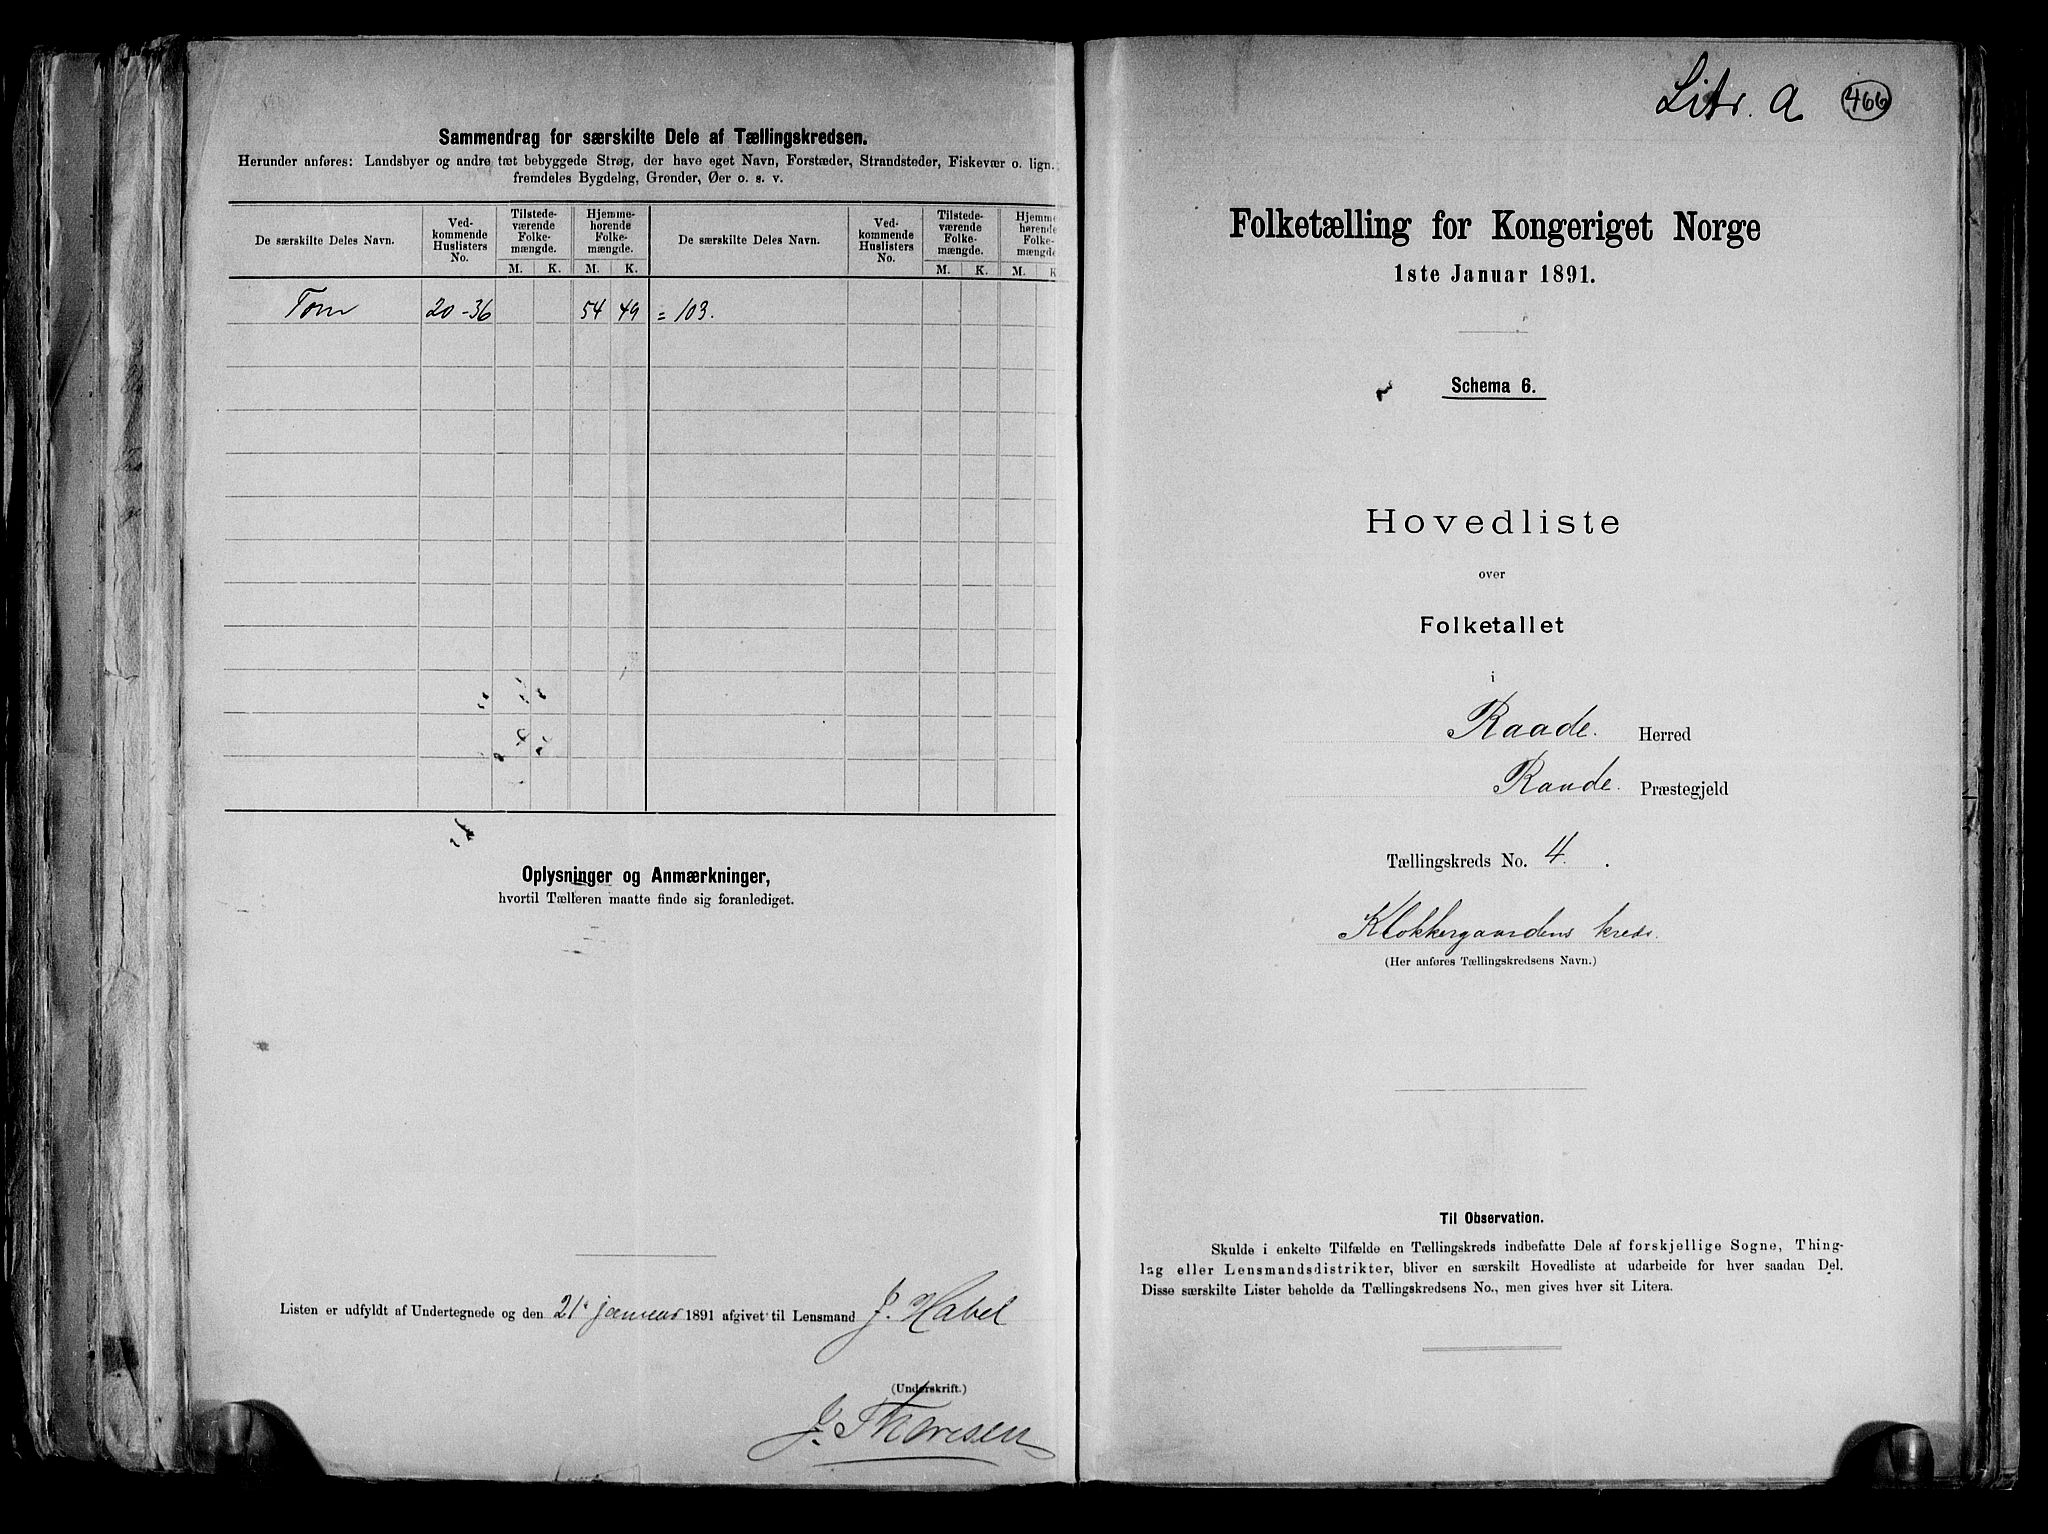 Sammendrag for særskilte Dele af Tællingskredsen.
Herunder anføres: Landsbyer og andre tæt bebyggede Strøg, der have eget Navn, Forstæder, Strandsteder, Fiskevær o. lign.,
fremdeles Bygdelag, Grender, Øer o. s. v.
De særskilte Deles Navn.
Ved-
kommende
Huslisters
No.
Tilstede-
værende
Folke-
mængde.
Hjemme-
hørende
Folke-
mængde.
De særskilte Deles Navn.
Ved-
kommende
Huslisters
No.
Tilstede-
værende
Folke-
mængde.
Hjemme
hørende
Folke-
mængde
M. K. M. K. M. K. M. K
Tom 20-36 54 49 = 103.
Oplysninger og Anmærkninger,
hvortil Tælleren maatte finde sig foranlediget.
Listen er udfyldt af Undertegnede og den 21. januar 1891 afgivet til Lensmand J. Habel
(Underskrift.)
J. Thoresen
Litr. a 466
Folketælling for Kongeriget Norge
1ste Januar 1891.
Schema 6.
Hovedliste
over
Folketallet
i
Raade. Herred
Raade. Præstegjeld
Tællingskreds No. 4.
Klokkergaardens kreds.
(Her anføres Tællingskredsens Navn.)
Til Observation.
Skulde i enkelte Tilfælde en Tællingskreds indbefatte Dele af forskjellige Sogne, Thing-
lag eller Lensmandsdistrikter, bliver en særskilt Hovedliste at udarbeide for hver saadan Del.
Disse særskilte Lister beholde da Tællingskredsens No., men gives hver sit Litera.